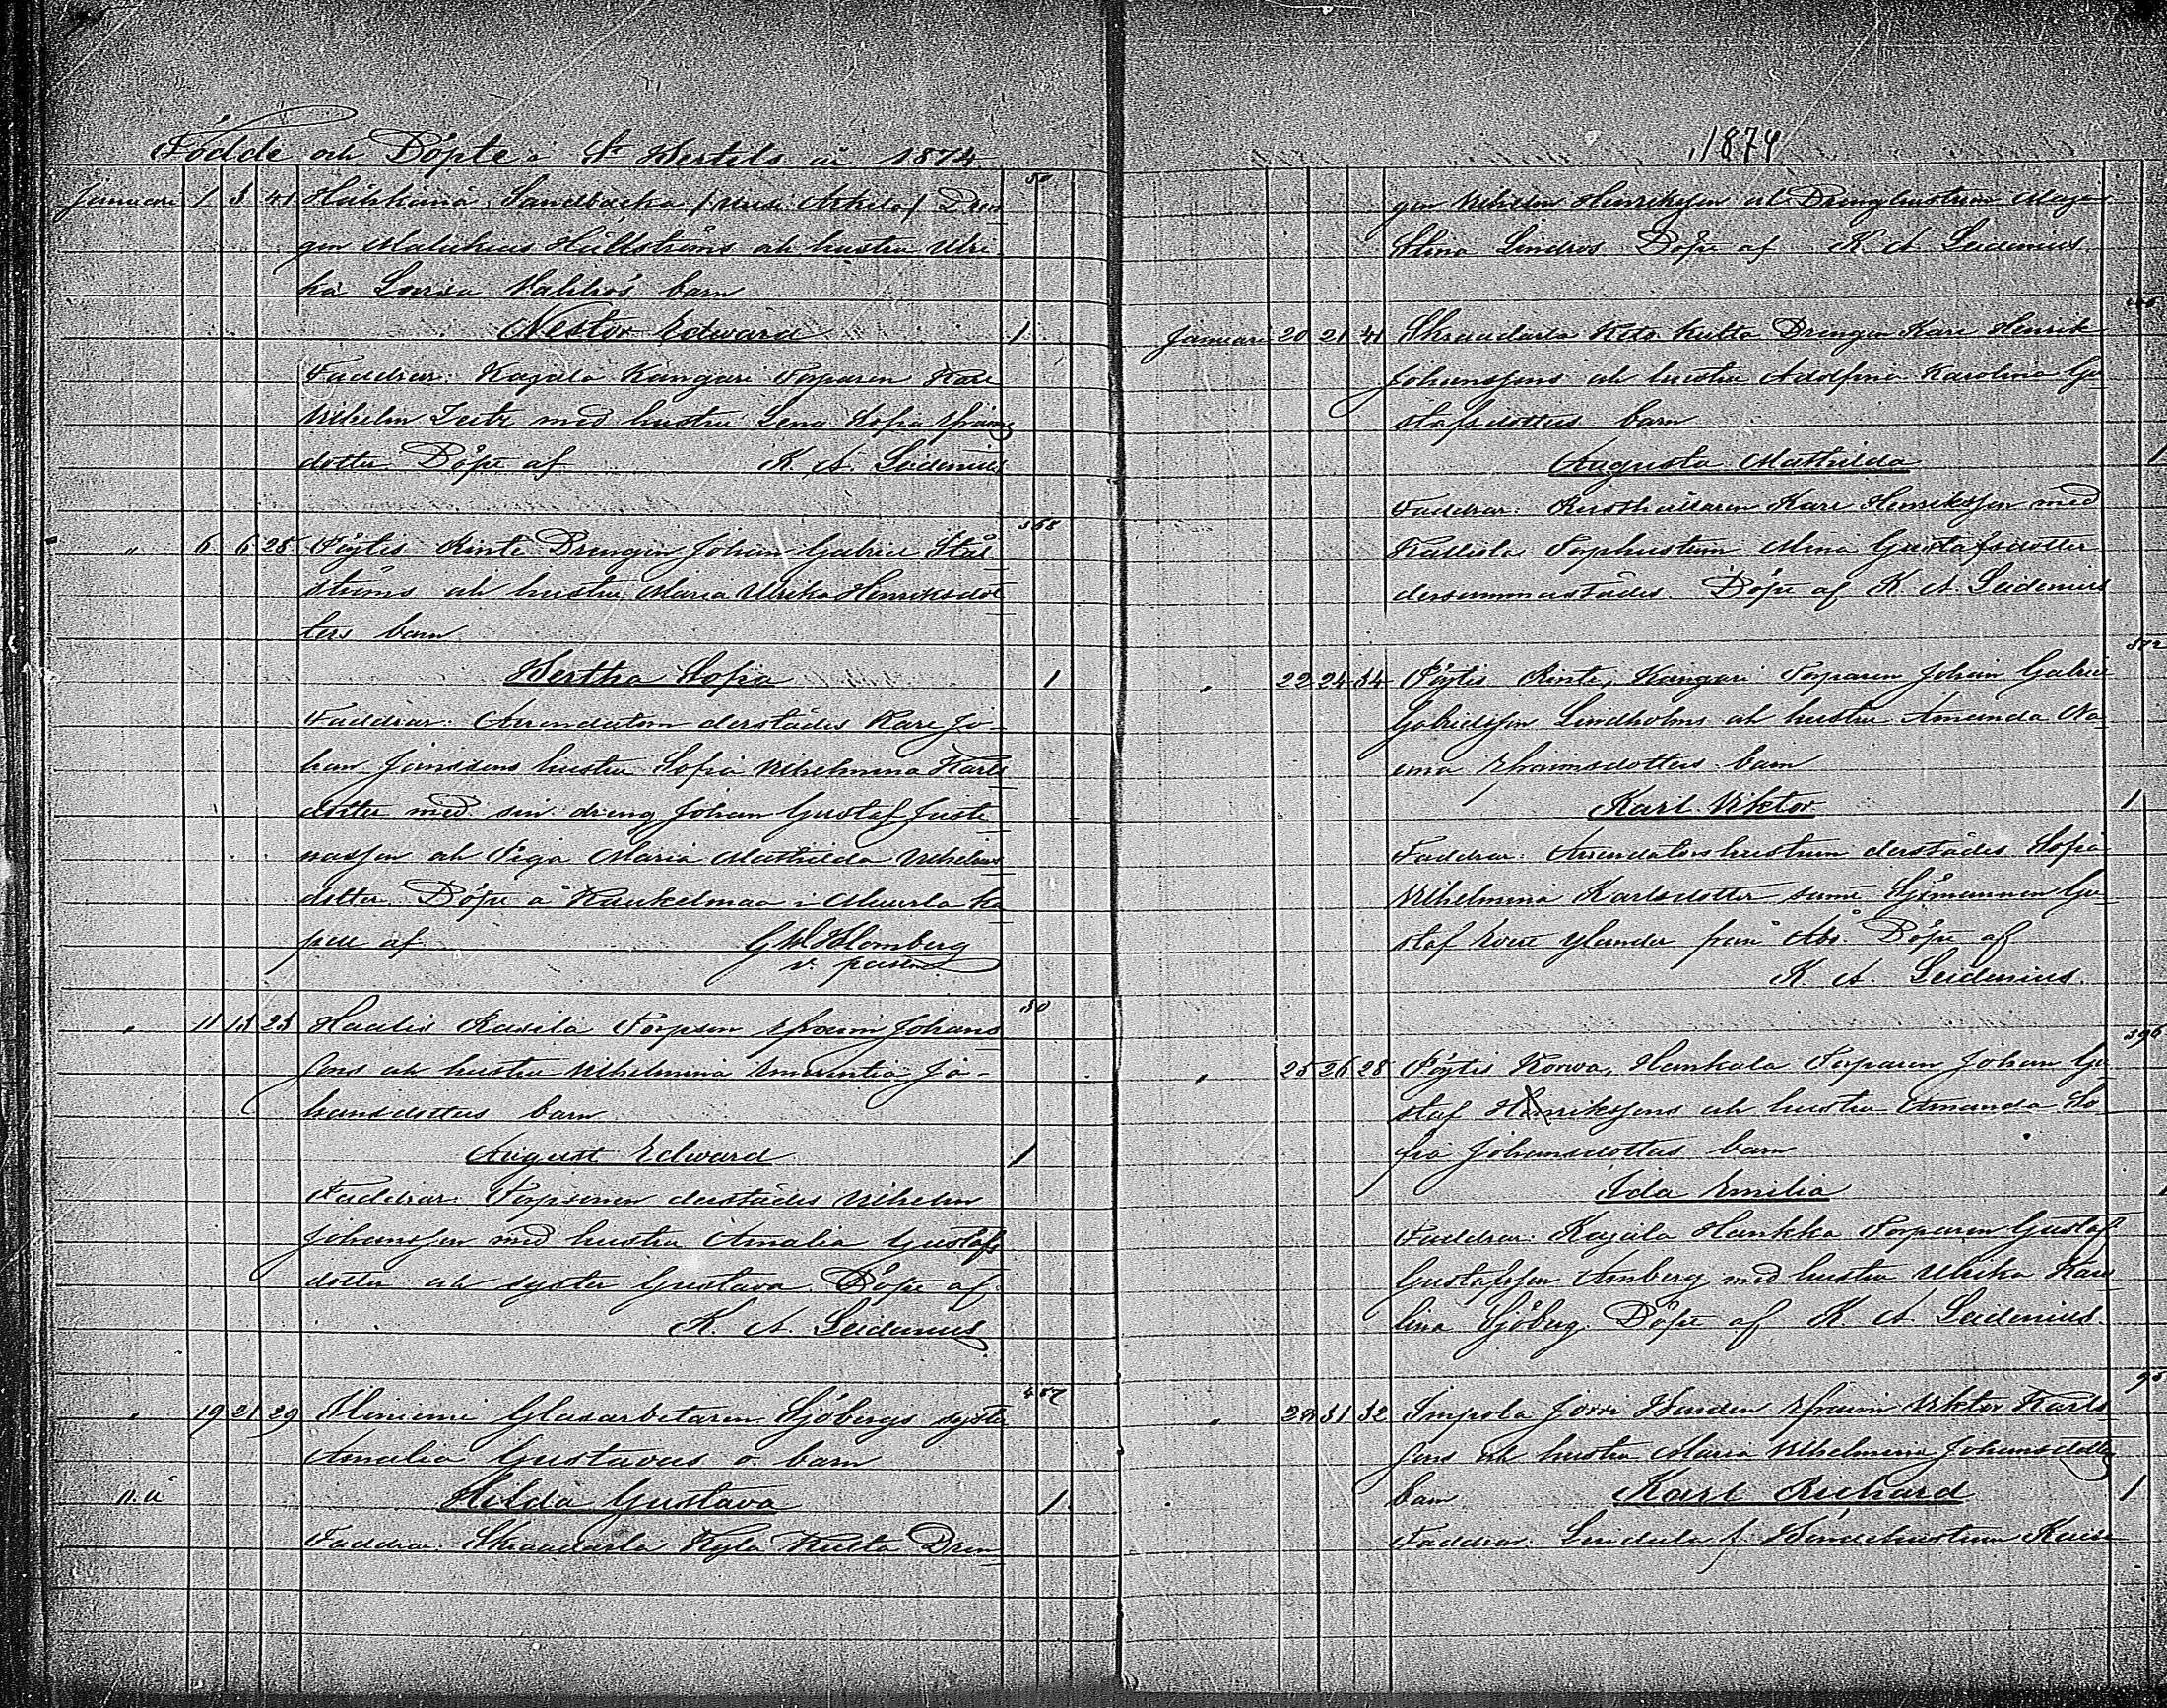 Födde och Döpte i St Bertels år 1874
50
Januari 1 3 41 Håhkänä Sandbacka / Uusi Arkila / Dren
gen Malakias Hällströms och hustru Ulri
ka Lovisa Valldros barn
Nestor Edward 1
Faddrar: Kajala Kangari Torparen Karl
Vilhelm Zeitz med hustru Lena Sofia Efraims
dotter Döpt af K. A. Leidenius
368
" 6 6 28 Pöytis Rinte Drengen Johan Gabriel Stål
ströms och hustru Maria Ulrika Henriksdot
ters barn
Bertha Sofia 1
Faddrar: Arrendatorn derstädes Karl Jo
han Janssons hustru Sofia Vilhelmina Karls
dotter med sin dreng Johan Gustaf Juste
nassen och Piga Maria Mathilda Vilhelms
dotter. Döpt å Kaukelmaa i Muurla ka
pell af G W Blomberg
v. pastor
50
" 11 13 23 Haalis Rasila Torpson Efraim Johans
sons och hustru Vilhelmina Amarintia Jo-
hansdotters barn
August Edward 1
Faddrar: Torpsonen derstädes Vilhelm
Johansson med hustru Amalia Gustafs
dotter och syster Gustava Döpt af
K. A. Leidenius
457
" 19 21 29 Glasarbetaren Sjöbergs syster
Amalia Gustavas o. barn
o. ä Hilda Gustava 1
Faddrar: Skraadarla Kylä Kulta Dren
1874
gen Vilhelm Henriksson och Drenghustrun Maja
Stina Lindros Döpt af K. A. Leidenius
Januari 20 21 41 Skraadarla kulta Drengen Karl Henrik
Johanssons och hustru Adolfina Karolina Gu
stafsdotters barn
Augusta Mathilda 1
Faddrar: Rusthållaren Karl Henriksson med
Torphustrun Mina Gustafsdotter
dersammastädes. Döpt af K. A. Leidenius
372
" 22 24 34 Pöytis Rinte, Kangari Torparen Johan Gabriel
Gabrielsson Lindholms och hustru Amanda No
ema Efraimsdotters barn
Karl Viktor 1
Faddrar: Arrendatorshustrun derstädes Sofia
Vilhelmina Karlsdotter samt Sjömannen Gu
staf Evert Ylander från Åbo. Döpt af
K. A. Leidenius.
396
" 25 26 28 Pöytis Korwa, Hankala Torparen Johan Gu
staf Henrikssons och hustru Amanda So
fia Johansdotters barn
Ida Emilia 1
Faddrar: Kajala Hankka Torparen Gustaf
Gustafsson Amberg med hustru Ulrika Karo
lina Sjöberg. Döpt af K. A. Leidenius.
95
" 29 31 32 Impola Jorri Bonden Efraim Viktor Karls
sons och hustru Maria Vilhelmina Johansdotters
barn Karl Richard 1
Faddrar: Lindula f. Bondehustrun Kaisa